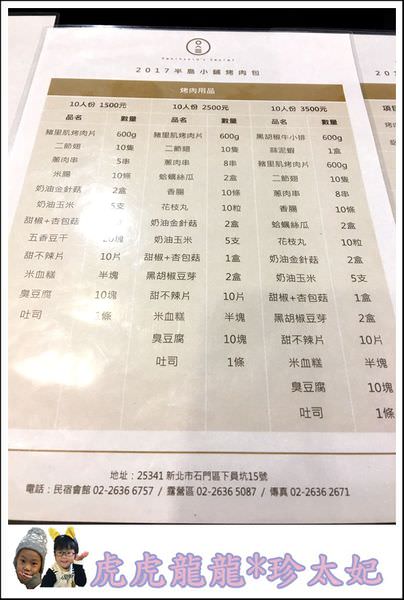 Peninsula's Secret
2017半島小鋪烤肉包
烤肉用品
10人份 1500元 10人份 2500元 10人份 3500元
品名 數量 品名 數量 品名 數量 項目
豬里肌烤肉片 600g 豬里肌烤肉片 600g 黑胡椒牛小排 600g
二節翅 10隻 二節翅 10隻 蒜泥蝦 1盒
蔥肉串 5串 蔥肉串 8串 豬里肌烤肉片 600g
米腸 10條 蛤蠣絲瓜 2盒 二節翅 10隻
奶油金針菇 2盒 香腸 10條 蔥肉串 8串
奶油玉米 5支 花枝丸 10粒 香腸 10條
甜椒+杏包菇 1盒 奶油金針菇 2盒 蛤蠣絲瓜 2盒
五香豆干 10塊 奶油玉米 5支 花枝丸 10粒
甜不辣片 10片 甜椒+杏包菇 1盒 奶油金針菇 2盒
米血糕 半塊 黑胡椒豆芽 2盒 奶油玉米 5支
臭豆腐 10塊 甜不辣片 10片 甜椒+杏包菇 1盒
吐司 1條 米血糕 半塊 黑胡椒豆芽 2盒
臭豆腐 10塊 甜不辣片 10片
吐司 1條 米血糕 半塊
臭豆腐 10塊
吐司 1條
地址：25341 新北市石門區下員坑15號
電話：民宿會館 02-2636 6757 / 露營區 02-2636 5087 / 傳真 02-2636 2671
虎虎龍龍*珍太妃